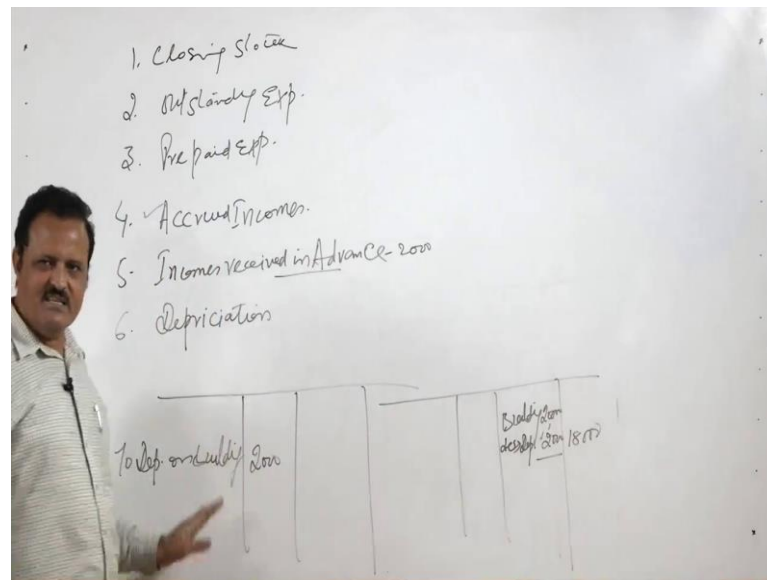 1. Closing Stock
2. Outstanding Exp.
3. Prepaid Exp.
4. Accrued Incomes.
5. Incomes received in Advance - 2000
6. Depriciation
To Dep. on Buildig 2000
Less Dep. 2000 18000